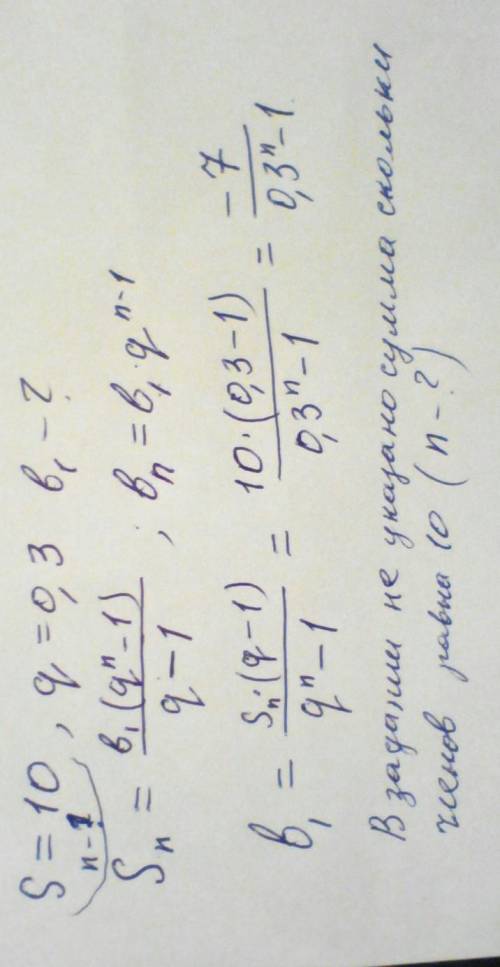 S = 10, q = 0,3 b₁ - ?
n - ?
Sₙ = b₁(qⁿ-1) / q-1 ; bₙ = b₁·qⁿ⁻¹
b₁ = Sₙ·(q-1) / qⁿ-1 = 10·(0,3-1) / 0,3ⁿ-1 = -7 / 0,3ⁿ-1
В задании не указано сумма скольки
членов равна 10 (n-?)